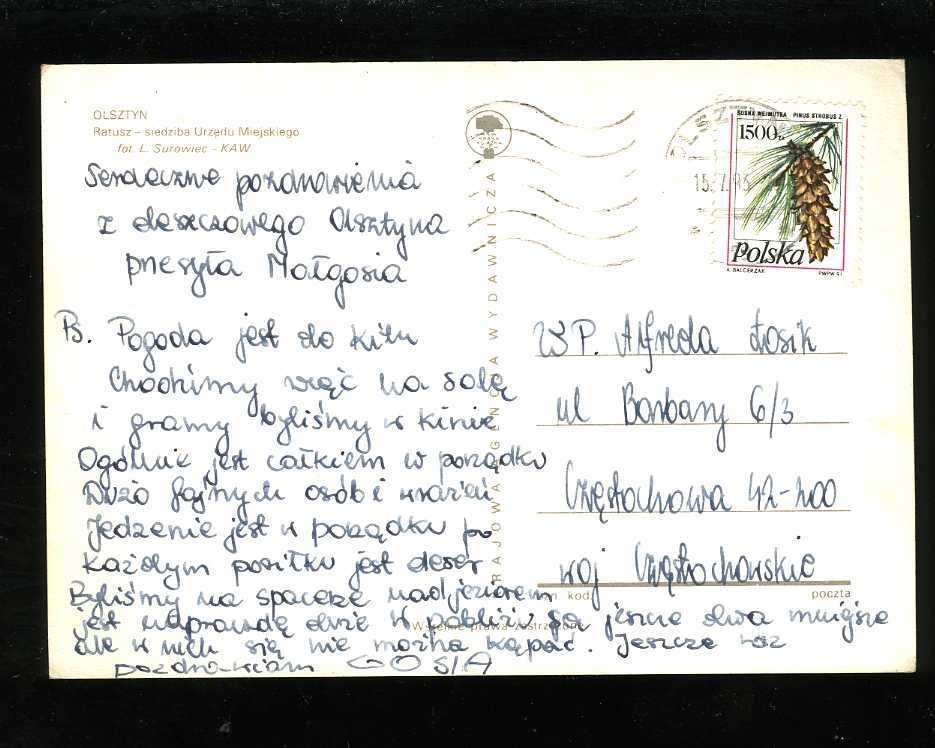 OLSZTYN
Ratusz – siedziba Urzędu Miejskiego
fot. L. Surowiec - KAW
Serdeczne pozdrowienia
z deszczowego Olsztyna
przesyła Małgosia
Ps. Pogoda jest do kitu
Chodzimy więc na salę
i gramy byliśmy w kinie
Ogólnie jest całkiem w porządku
Dużo fajnych osób i wrażeń
Jedzenie jest w porządku po
każdym posiłku jest deser
Byliśmy na spacerze nad jeziorem
jest naprawdę duże w pobliżu są jeszcze dwa mniejsze
ale w nich się nie można kąpać. Jeszcze raz
pozdrawiam GOSIA
KRAJOWA AGENCJA WYDAWNICZA
SOSNA WEJMUTKA PINUS STROBUS L.
1500zł
Polska
K. BALCERZAK PWPW 91
15.7.
W.P. Alfreda Łosik
ul Barbary 6/3
Częstochowa 42-200
woj Częstochowskie
kod poczta
Wszelkie prawa zastrzeżone